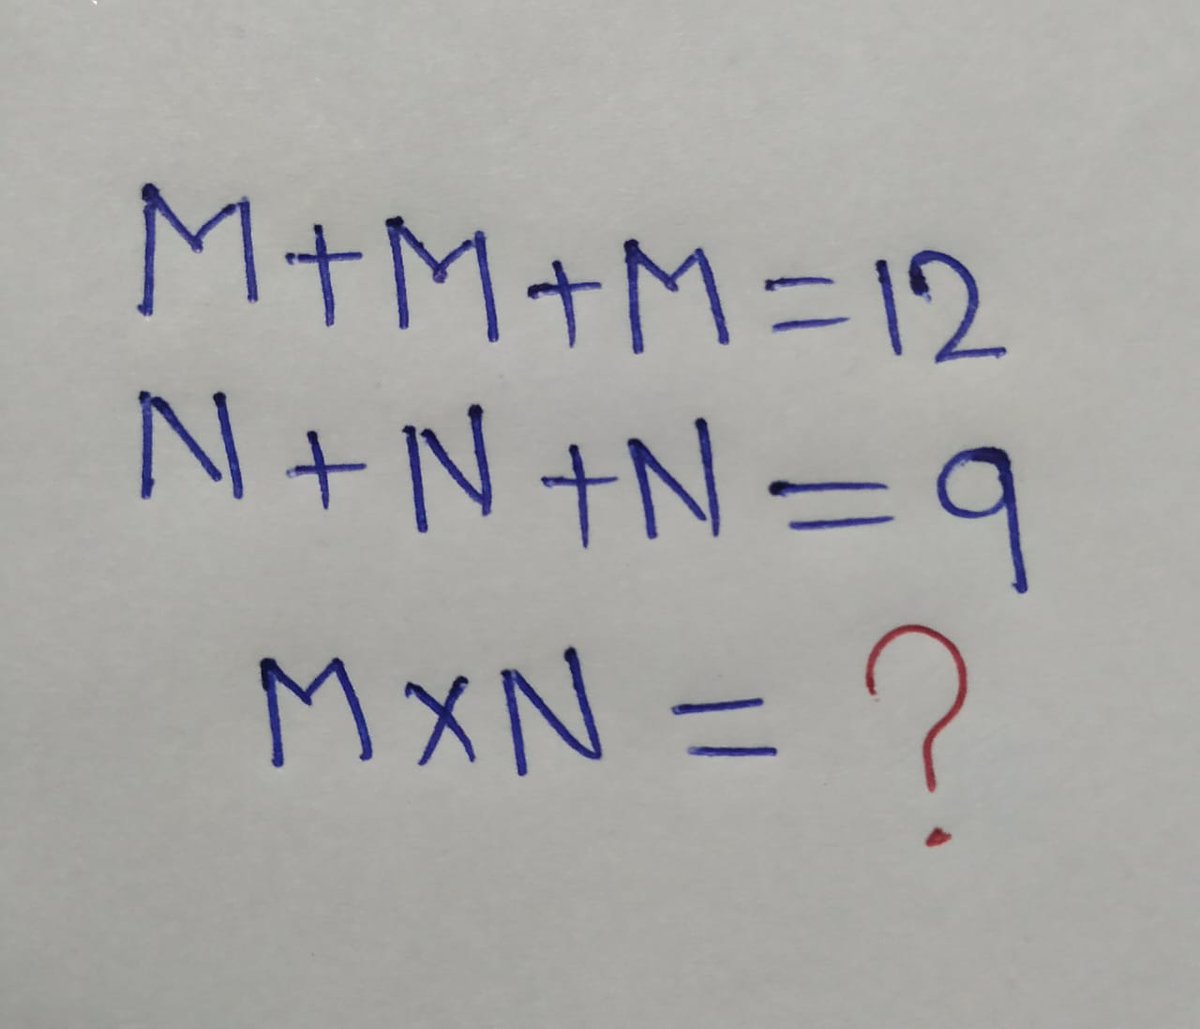 M+M+M=12
N+N+N=9
M×N = ?